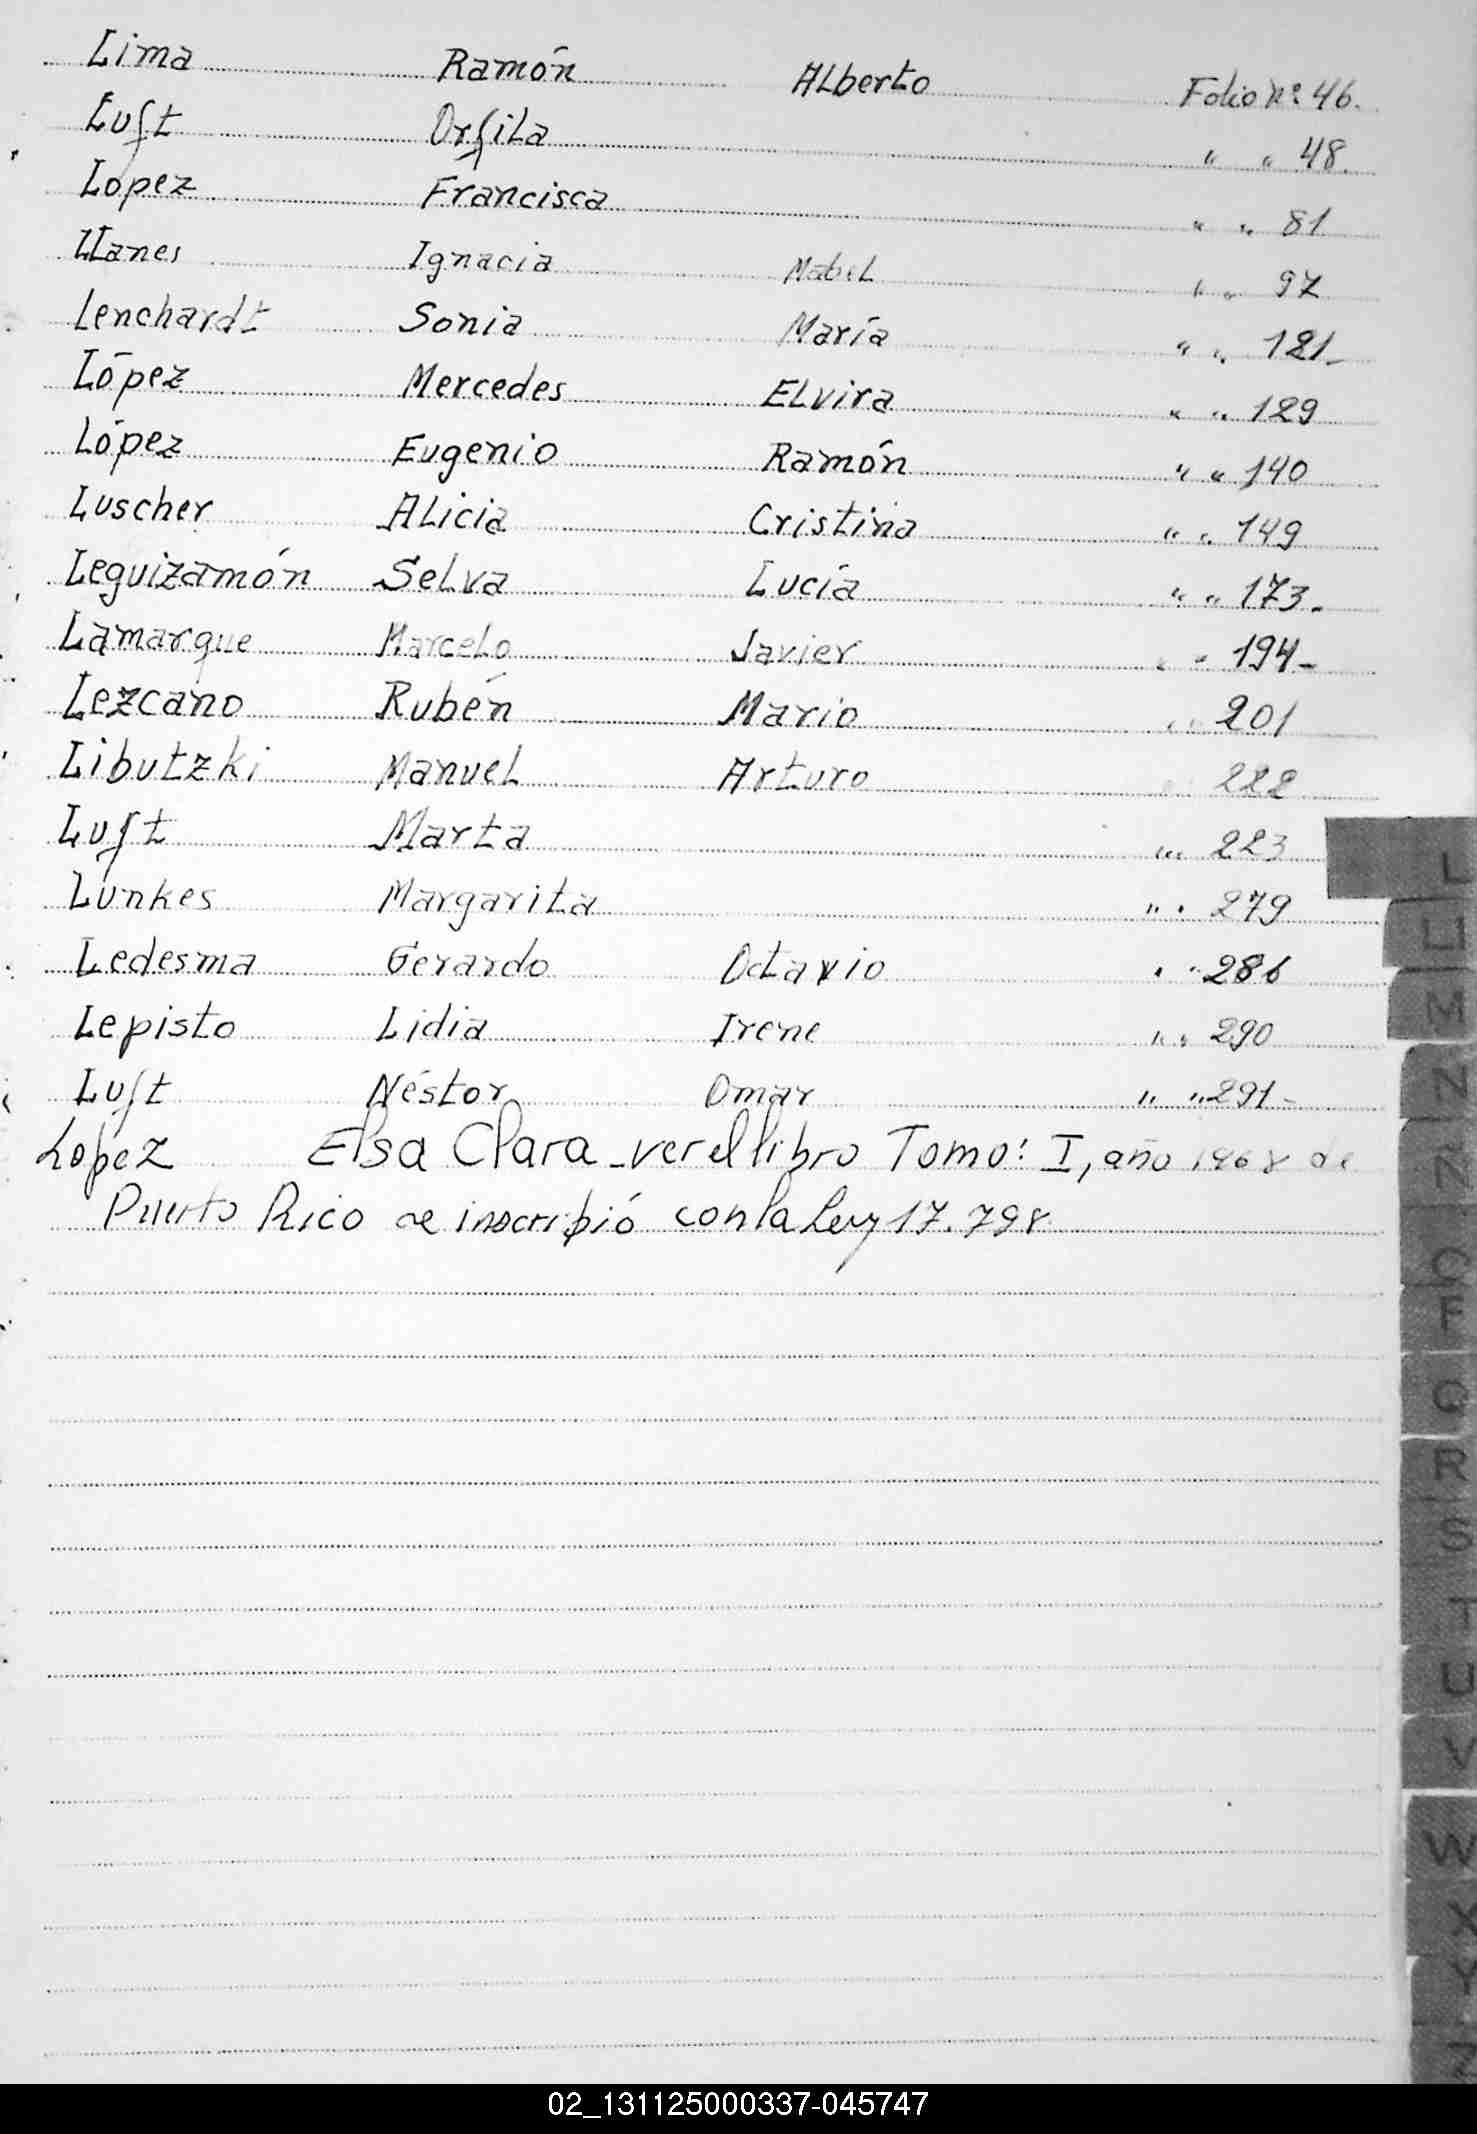 Lima Ramón Alberto Folio Nº 46.
Luft Orfila " " 48.
Lopez Francisca " " 81
Llanes Ignacia Mabel " " 97
Lenchardt Sonia María " " 121-
López Mercedes Elvira " " 129
López Eugenio Ramón " " 140
Luscher Alicia Cristina " " 149
Leguizamón Selva Lucía " " 173.
Lamarque Marcelo Javier " " 194-
Lezcano Rubén Mario " " 201
Libutzki Manuel Arturo " " 222
Luft Marta " " 223
Lunkes Margarita " " 279
Ledesma Gerardo Octavio " " 286
Lepisto Lidia Irene " " 290
Luft Néstor Omar " " 291-
Lopez Elsa Clara - ver el libro Tomo: I, año 1968 de
Puerto Rico se inscribió con la Ley 17.798
L
LL
M
N
Ñ
O
P
Q
R
S
T
U
V
W
X
Y
Z
02_131125000337-045747